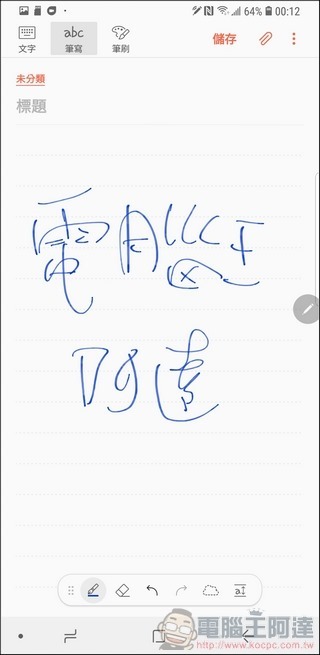 64% 00:12
文字 abc 筆寫 筆刷 儲存
未分類
標題
電腦王
阿達
電腦王阿達
http://www.xocpc.com.tw